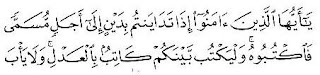 يَٰٓأَيُّهَا ٱلَّذِينَ ءَامَنُوٓا۟ إِذَا تَدَايَنتُم بِدَيْنٍ إِلَىٰٓ أَجَلٍ مُّسَمًّى
فَٱكْتُبُوهُ ۚ وَلْيَكْتُب بَّيْنَكُمْ كَاتِبٌۢ بِٱلْعَدْلِ ۚ وَلَا يَأْبَ